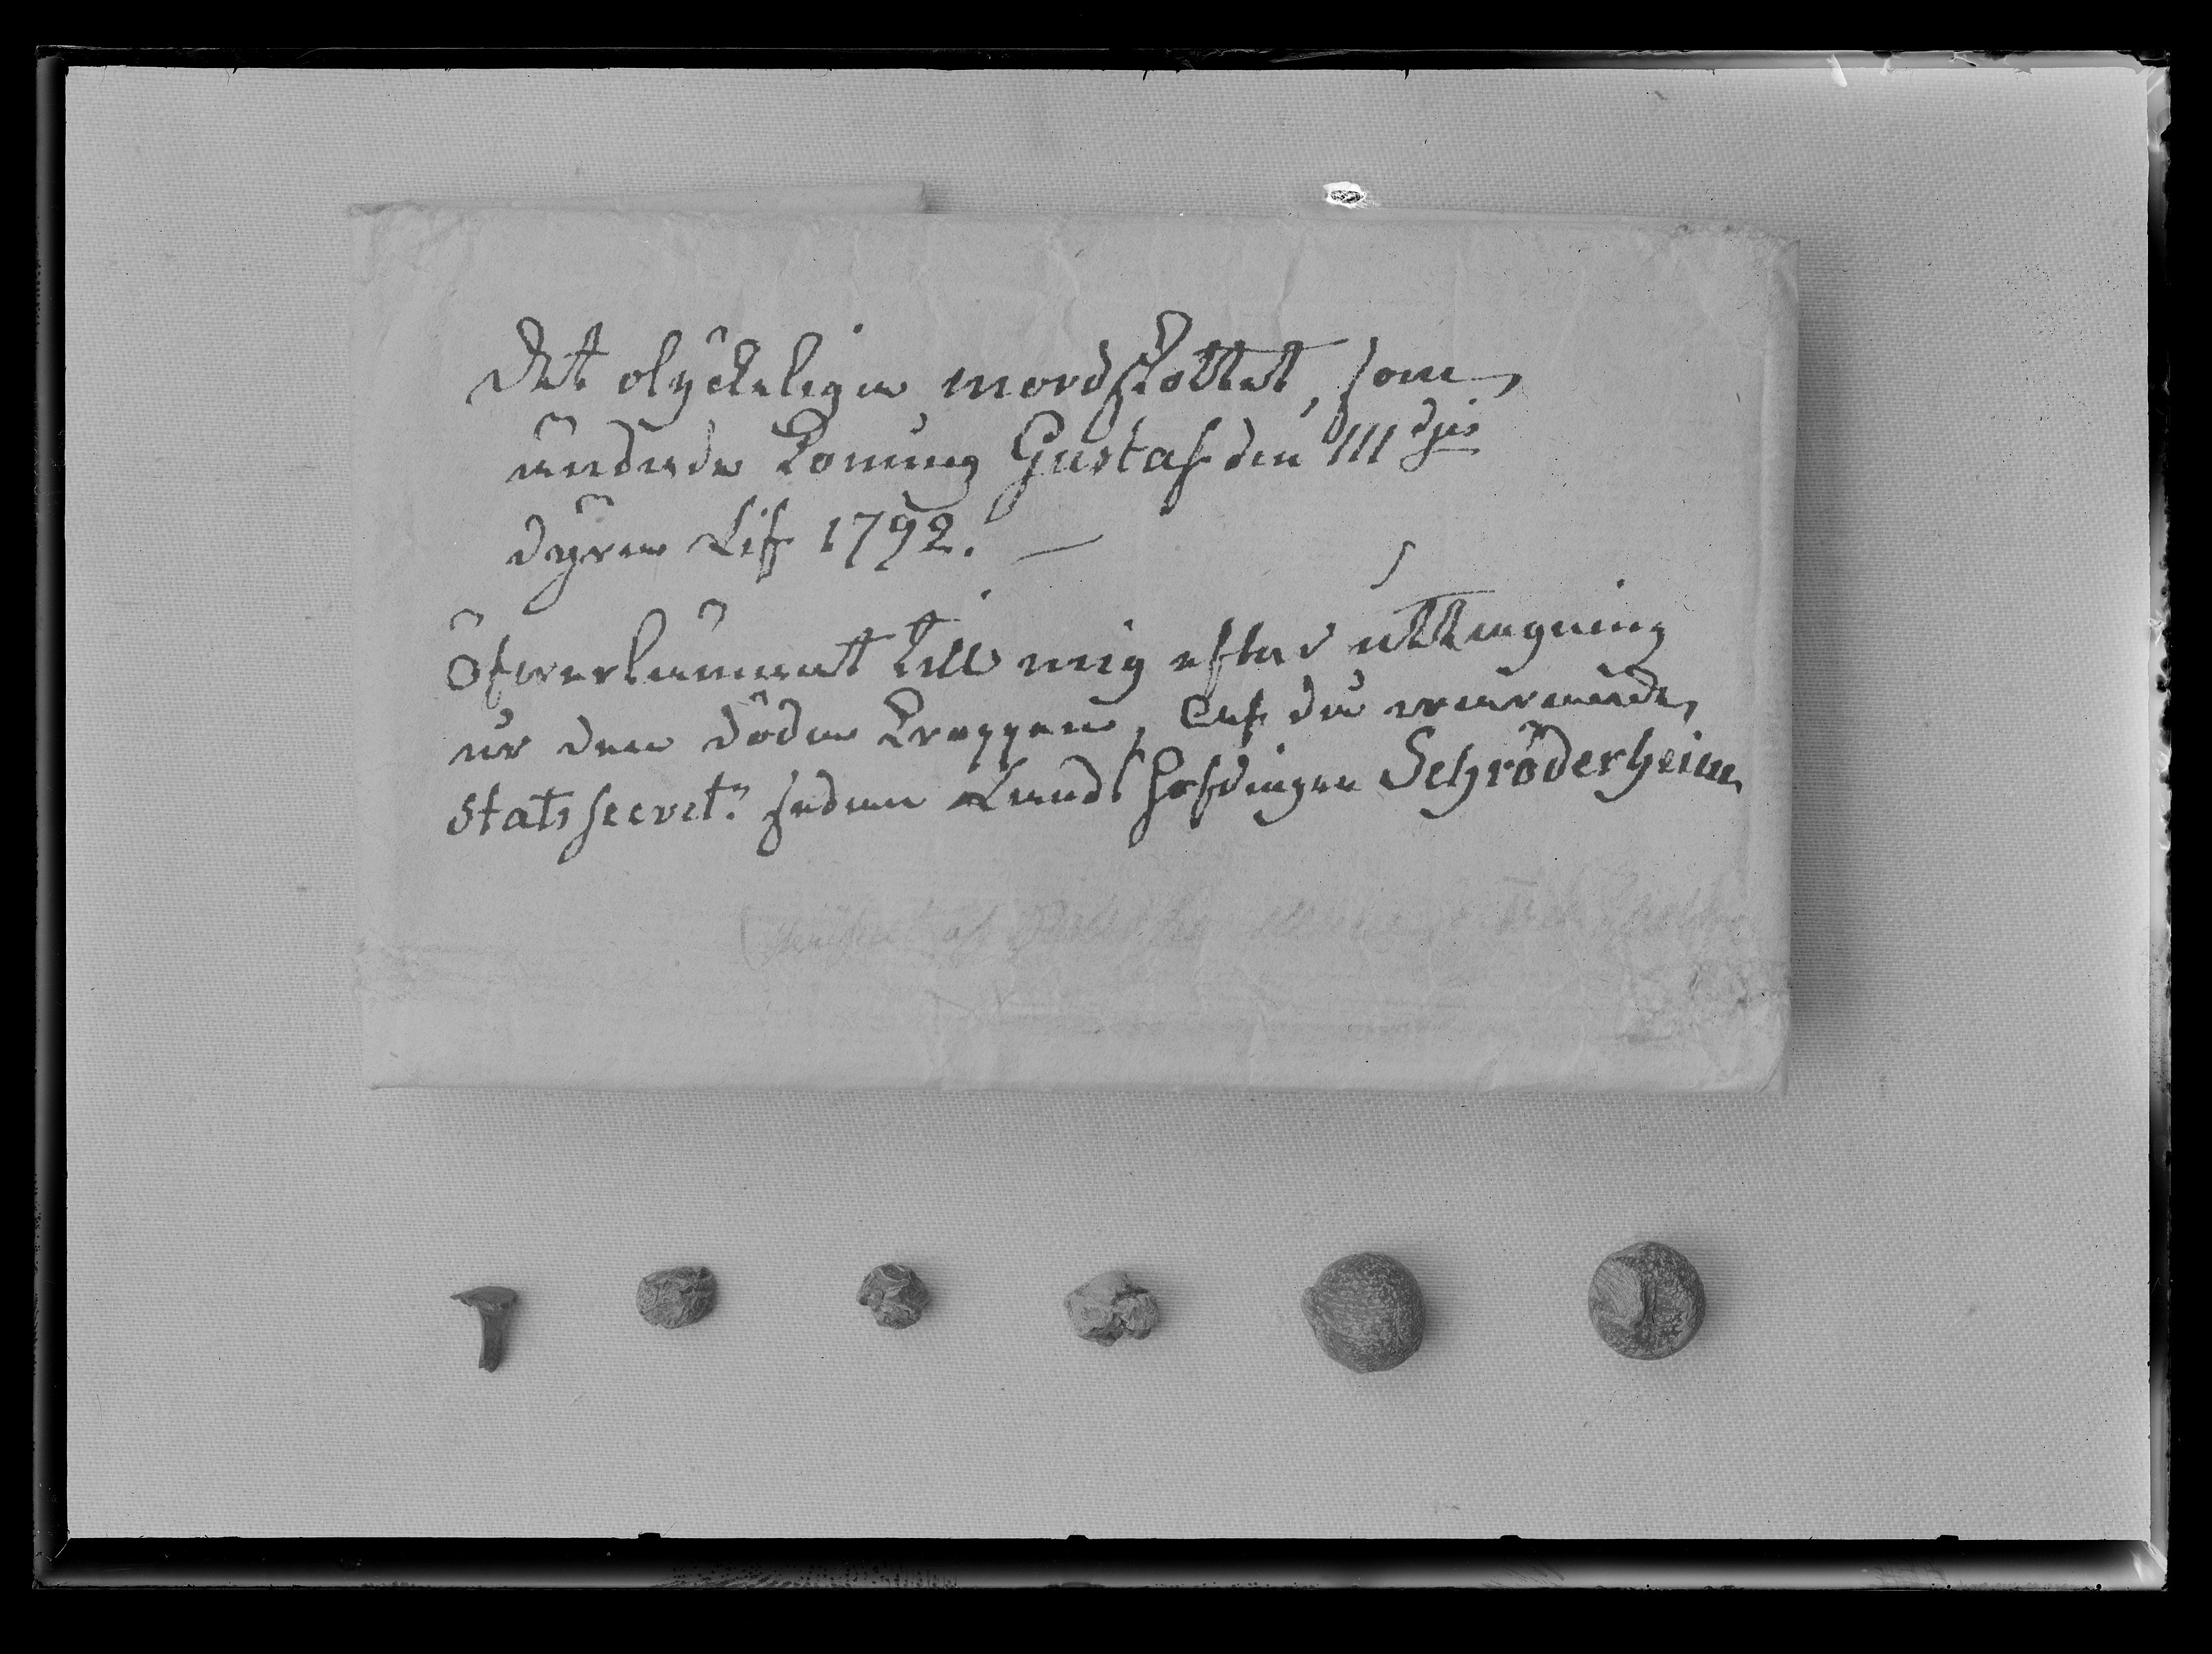 Det olyckelige mordskottet, som
ändade Konung Gustaf den III djes
dyra Lif 1792. —
Öfverlämnat till mig efter uttagning
ur den döda Kroppen, af då varande,
Statssecret: sedan Lands höfdingen Schröderheim
af